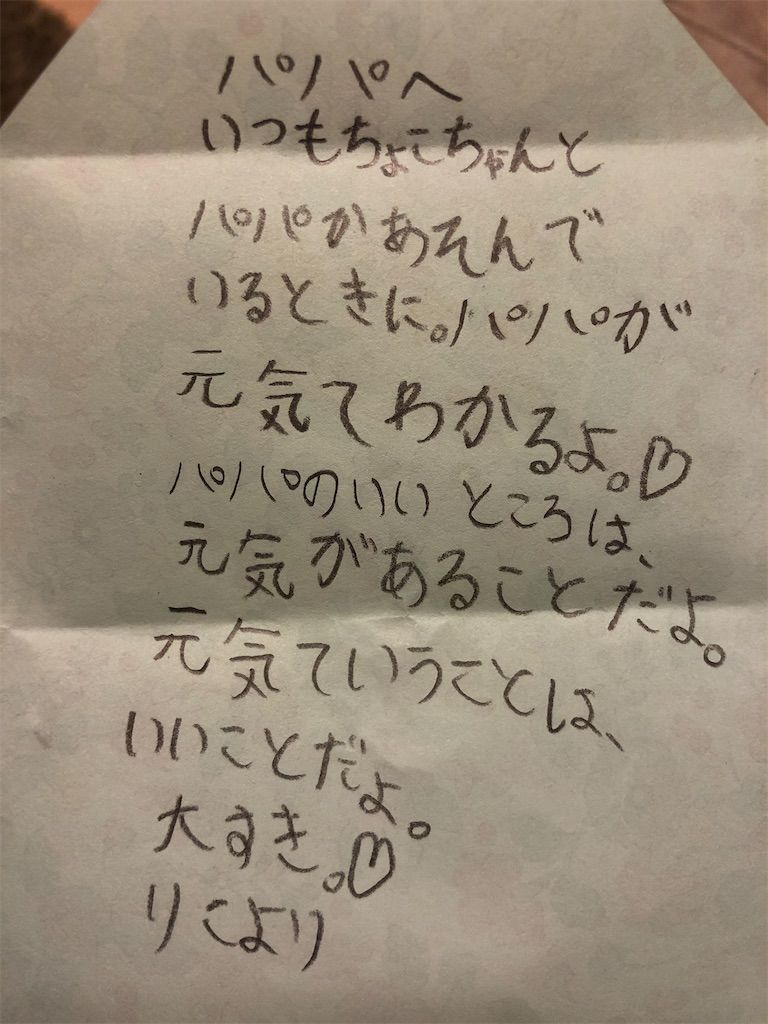 パパへ
いつもちょこちゃんと
パパがあそんで
いるときに。パパが
元気てわかるよ。♡
パパのいいところは、
元気があることだよ。
元気ていうことは、
いいことだよ。
大すき。♡
りこより